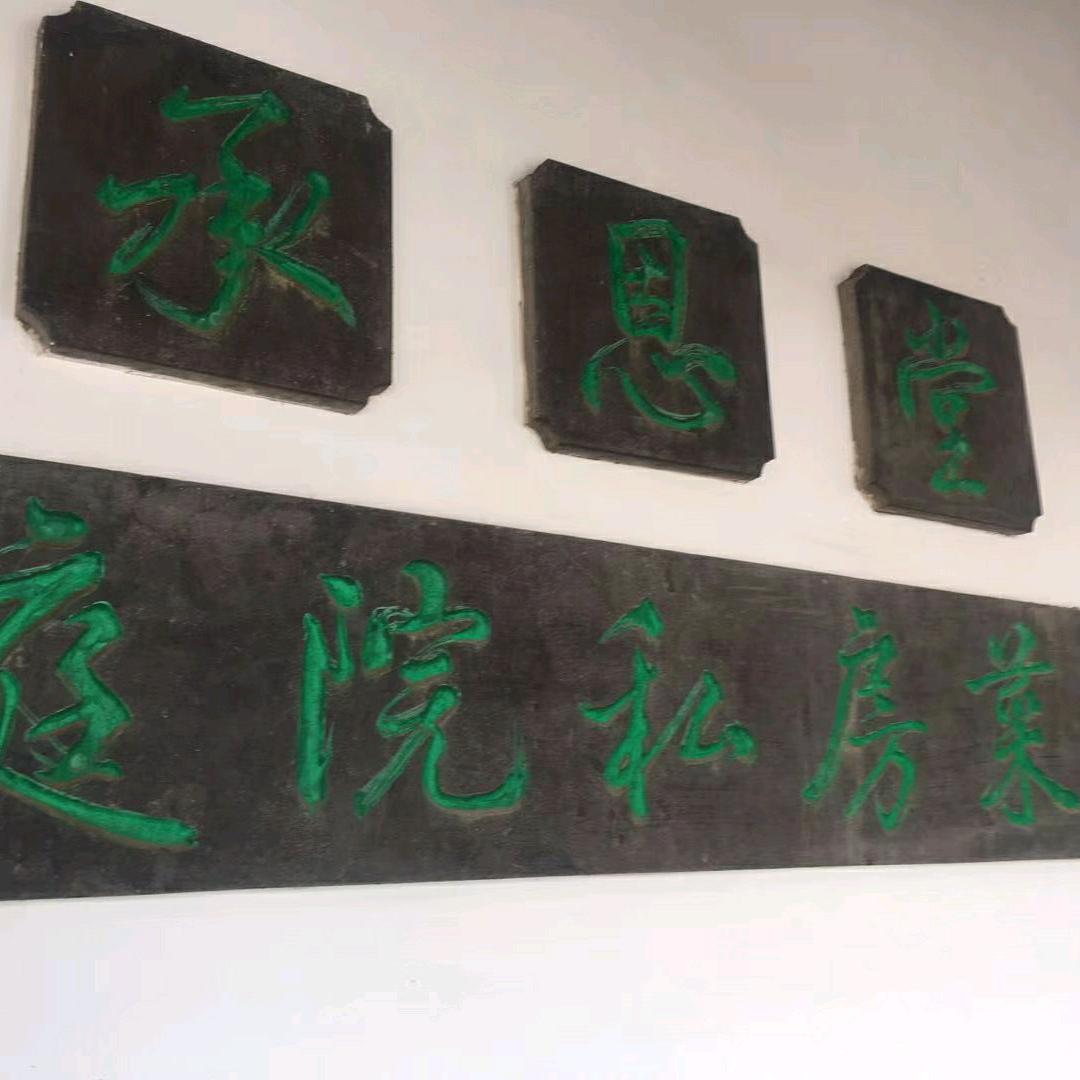 承恩堂
庭院私房菜